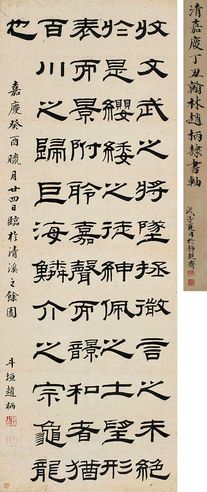 清嘉慶丁丑翰林趙柄隸書軸
收文武之將墜拯微言之未絕
於是纓緌之徒紳佩之士望形
表而景附聆嘉聲而響和者猶
百川之歸巨海鱗介之宗龜龍
也
嘉慶癸酉臘月廿四日臨於清溪之餘園
斗垣趙柄